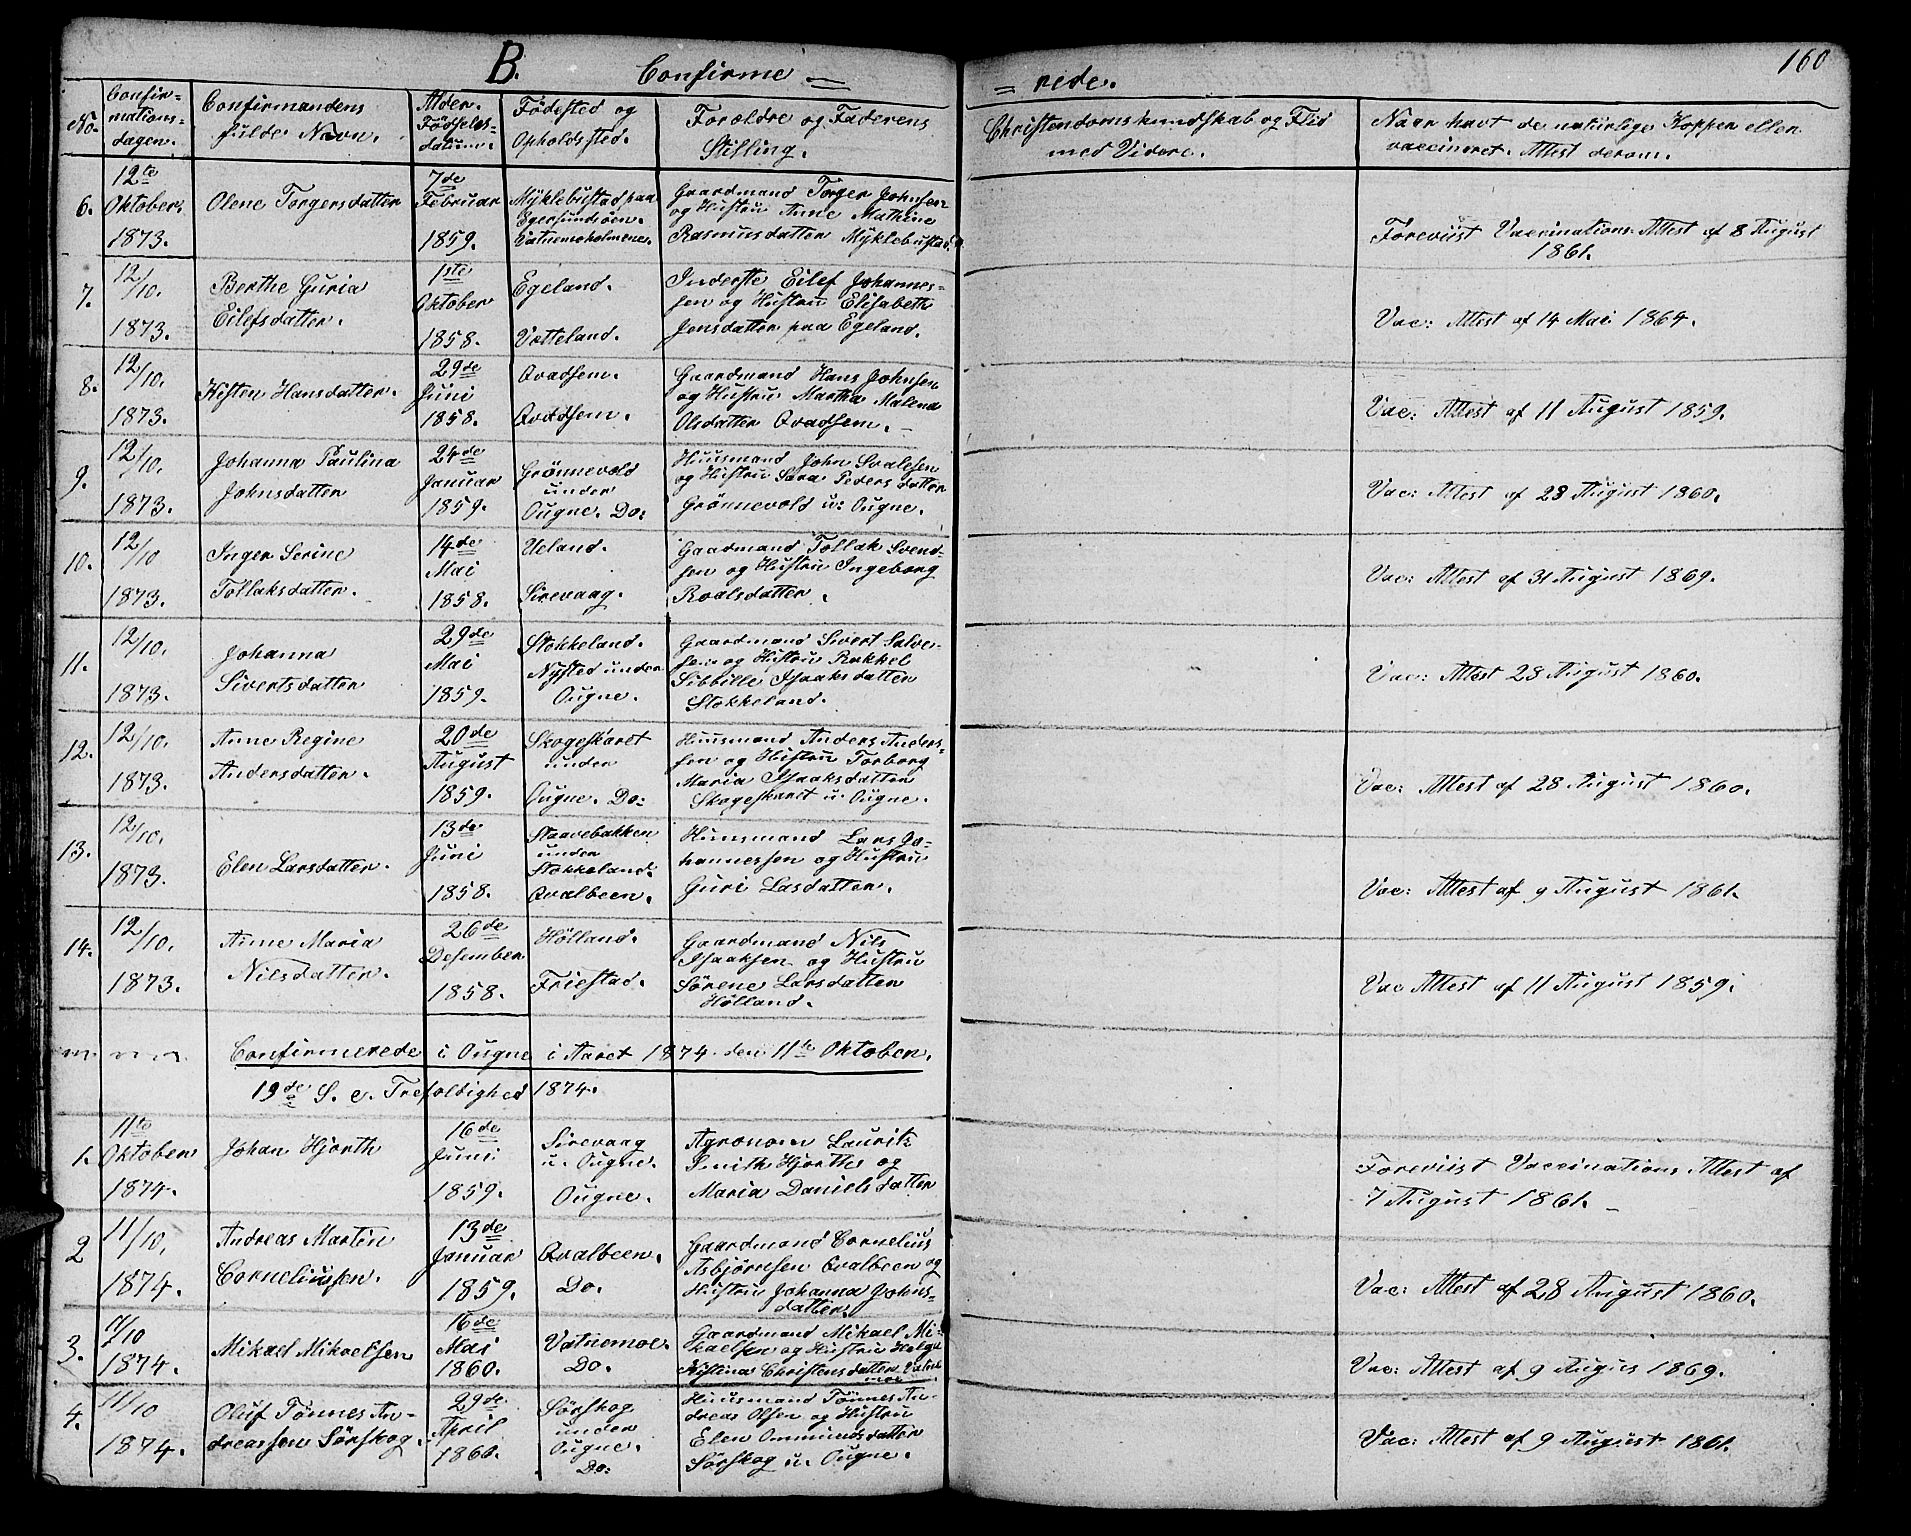 160
B.
Confirme = = rede.
No.
Confir-
mations-
dagen.
Confirmandens
fulde Navn.
Alder.
Födsels-
datum.
Födested og
Opholdssted.
Forældre og Faderens
Stilling.
Christendomskundskab og Flid
med Videre.
Naar havt de naturlige Kopper eller
vaccineret. Attest derom.
6.
12te
Oktober.
1873.
Olene Torgersdatter
7de
Februar
1859.
Myklebustad paa
Egersundsöen.
Vatnemoholmene.
Gaardmand Torger Johnsen
og Hustru Anne Mathine
Rasmusdatter Myklebustad.
Foreviist Vaccinations Attest af 8 August
1861.
7.
12/10.
1873.
Berthe Guria
Eilefsdatter.
1ste
Oktober
1858.
Egeland.
Vatteland.
Inderste Eilef Johannes-
sen og Hustru Elisabeth
Jonsdatter paa Egeland.
Vac: Attest af 14 Mai 1864.
8.
12/10.
1873.
Kisten Hansdatter.
29de
Juni
1858.
Qvadsem.
Qvadsem.
Gaardmand Hans Johnsen
og Hustru Martha Malena
Olsdatter Qvadsem.
Vac: Attest af 11 August 1859.
9.
12/10.
1873.
Johanna Paulina
Johnsdatter
24de
Januar
1859.
Grönnevold
under
Ougne. Do:
Huusmand John Svalesen
og Hustru Sara Pedersdatter
Grönnevold u: Ougne.
Vac: Attest af 28 August 1860.
10.
12/10
1873.
Inger Serine
Tollaksdatter.
14de
Mai
1858.
Ueland.
Sirevaag.
Gaardmand Tollak Svend-
sen og Hustru Ingeborg
Roalsdatter.
Vac: Attest af 31 August 1869.
11.
12/10.
1873.
Johanna
Sivertsdatter
29de
Mai
1859.
Stokkeland.
Nysted under
Ougne.
Gaardmand Sivert Salve-
sen og Hustru Rakkel
Sibbille Isaaksdatter
Stokkeland.
Vac: Attest 28 August 1860.
12.
12/10.
1873.
Anne Regine
Andersdatter.
20de
August
1859.
Skogeskaret
under
Ougne. Do:
Huusmand Anders Anders-
sen og Hustru Torborg
Maria Isaaksdatter
Skogeskaret u: Ougne.
Vac: Attest af 28 August 1860.
13.
12/10.
1873.
Elen Larsdatter.
13de
Juni
1858.
Staavebakken
under
Stokkeland.
Qvalbeen.
Huusmand Lars Jo-
hannessen og Hustru
Guri Lasdatter.
Vac: Attest af 9 August 1861.
14.
12/10.
1873.
Anne Maria
Nilsdatter.
26de
Desember
1858.
Hölland.
Friestad.
Gaardmand Nils
Isaaksen og Hustru
Sörene Larsdatter
Hölland.
Vac Attest af 11 August 1859.
Confirmerede i Ougne i Aaret 1874 den 11te Oktober.
19de S. e. Trefoldighed 1874.
1.
11te
Oktober
1874.
Johan Hjorth
16de
Juni
1859.
Sirevaag
u. Ougne.
Ougne.
Agronom Laurits
Smith Hjorthe og
Maria Danielsdatter
Foreviist Vaccinations Attest af
7 August 1861.
2
11/10.
1874.
Andreas Martin
Corneliussen.
13de
Januar
1859.
Qvalbeen.
Do.
Gaardmand Cornelius
Asbjörnsen Qvalbeen og
Hustru Johanna Johns-
datter.
Vac: Attest af 28 August 1860.
3.
11/10
1874.
Mikael Mikaelsen
16de
Mai
1860.
Vatnemoe.
Do.
Gaardmand Mikael Mi-
kaelsen og Hustru Helga
Kistina Christensdatter Vatne
moe
Vac: Attest af 9 Augus 1869.
4.
11/10
1874.
Oluf Tönnes An-
dreassen Sörskog.
29de
April
1860.
Sörskog
under
Ougne.
Do:
Huusmand Tönnes An-
dreas Olsen og Hustru
Elen Ommundsdatter
Sörskog u. Ougne.
Vac: Attest af 9 August 1861.